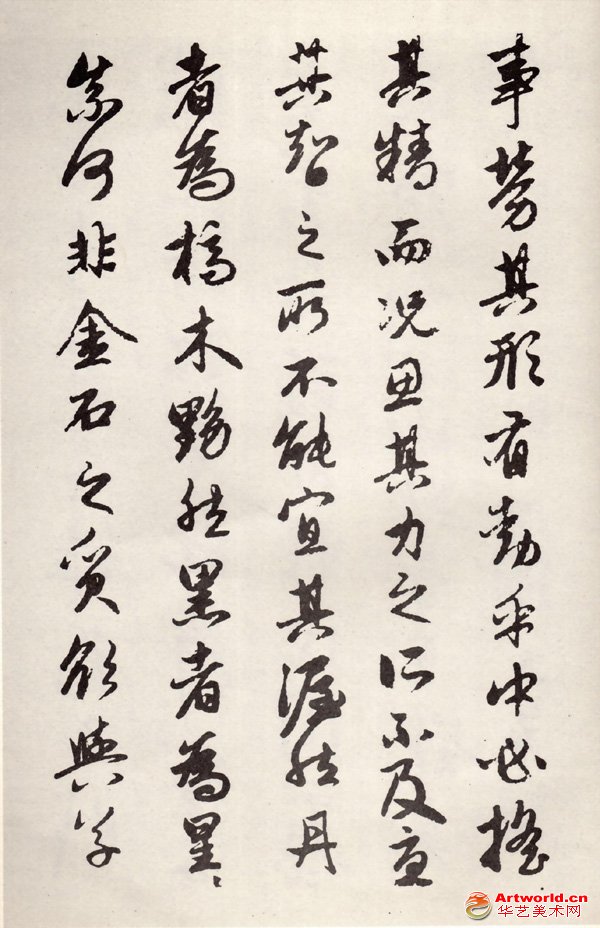 事勞其形有動乎中必搖
其精而況思其力之所不及憂
其智之所不能宜其渥然丹
者為槁木黟然黑者為星〻
奈何非金石之質欲與草
Artworld.cn
华艺美术网